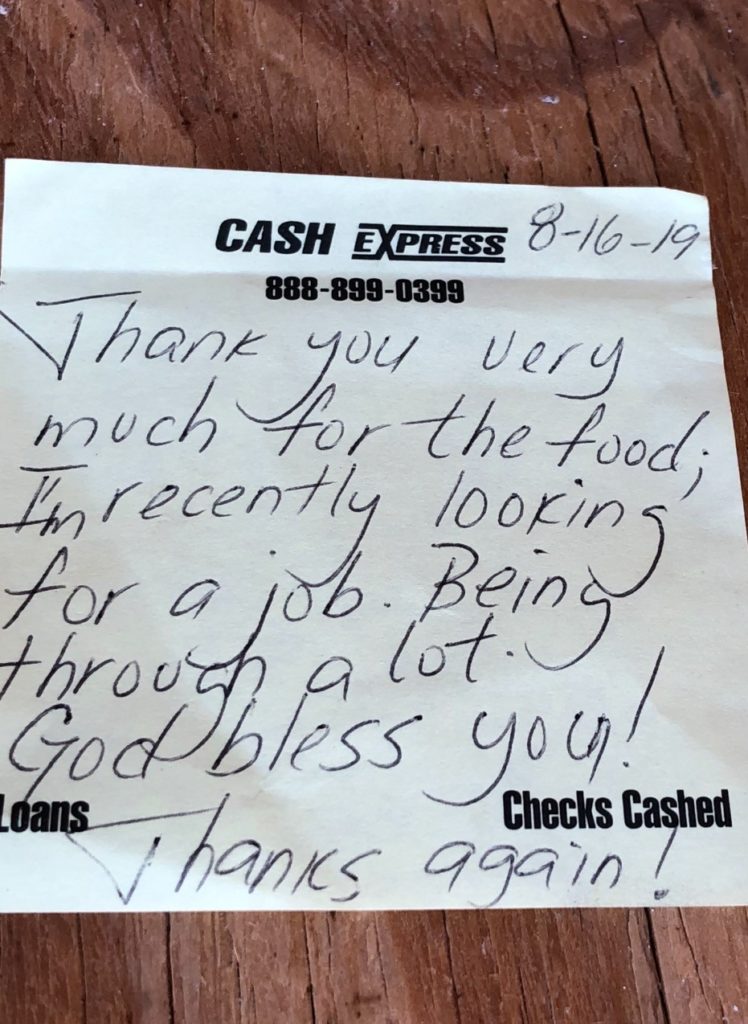 CASH EXPRESS 8-16-19
888-899-0399
Thank you very
much for the food;
I'm recently looking
for a job. Being
through a lot.
God bless you!
Loans Checks Cashed
Thanks again!